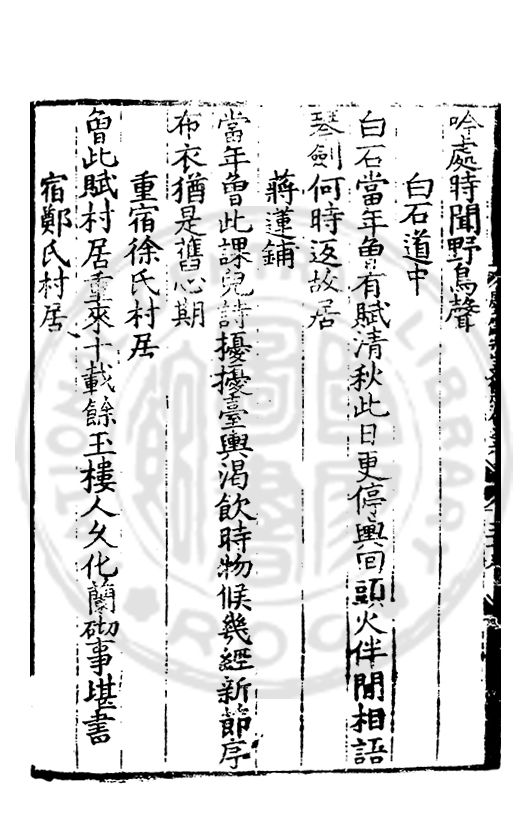 吟處時聞野鳥聲
白石道中
白石當年曾有賦清秋此日更停輿囘頭火伴閒相語
琴劍何時返故居
蔣蓮鋪
當年曾此課兒詩擾擾臺輿渴飲時物候幾經新節序
布衣猶是舊心期
重宿徐氏村居
曾此賦村居重來十載餘玉樓人久化蘭砌事堪書
宿鄭氏村居
NATIONAL LIBRARY